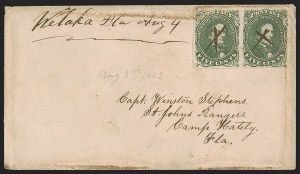 Welaka Fla Aug 4
FIVE CENTS FIVE CENTS
Aug 3rd 1862
Capt. Winston Stephens,
St Johns Rangers
Camp Hately,
Fla.